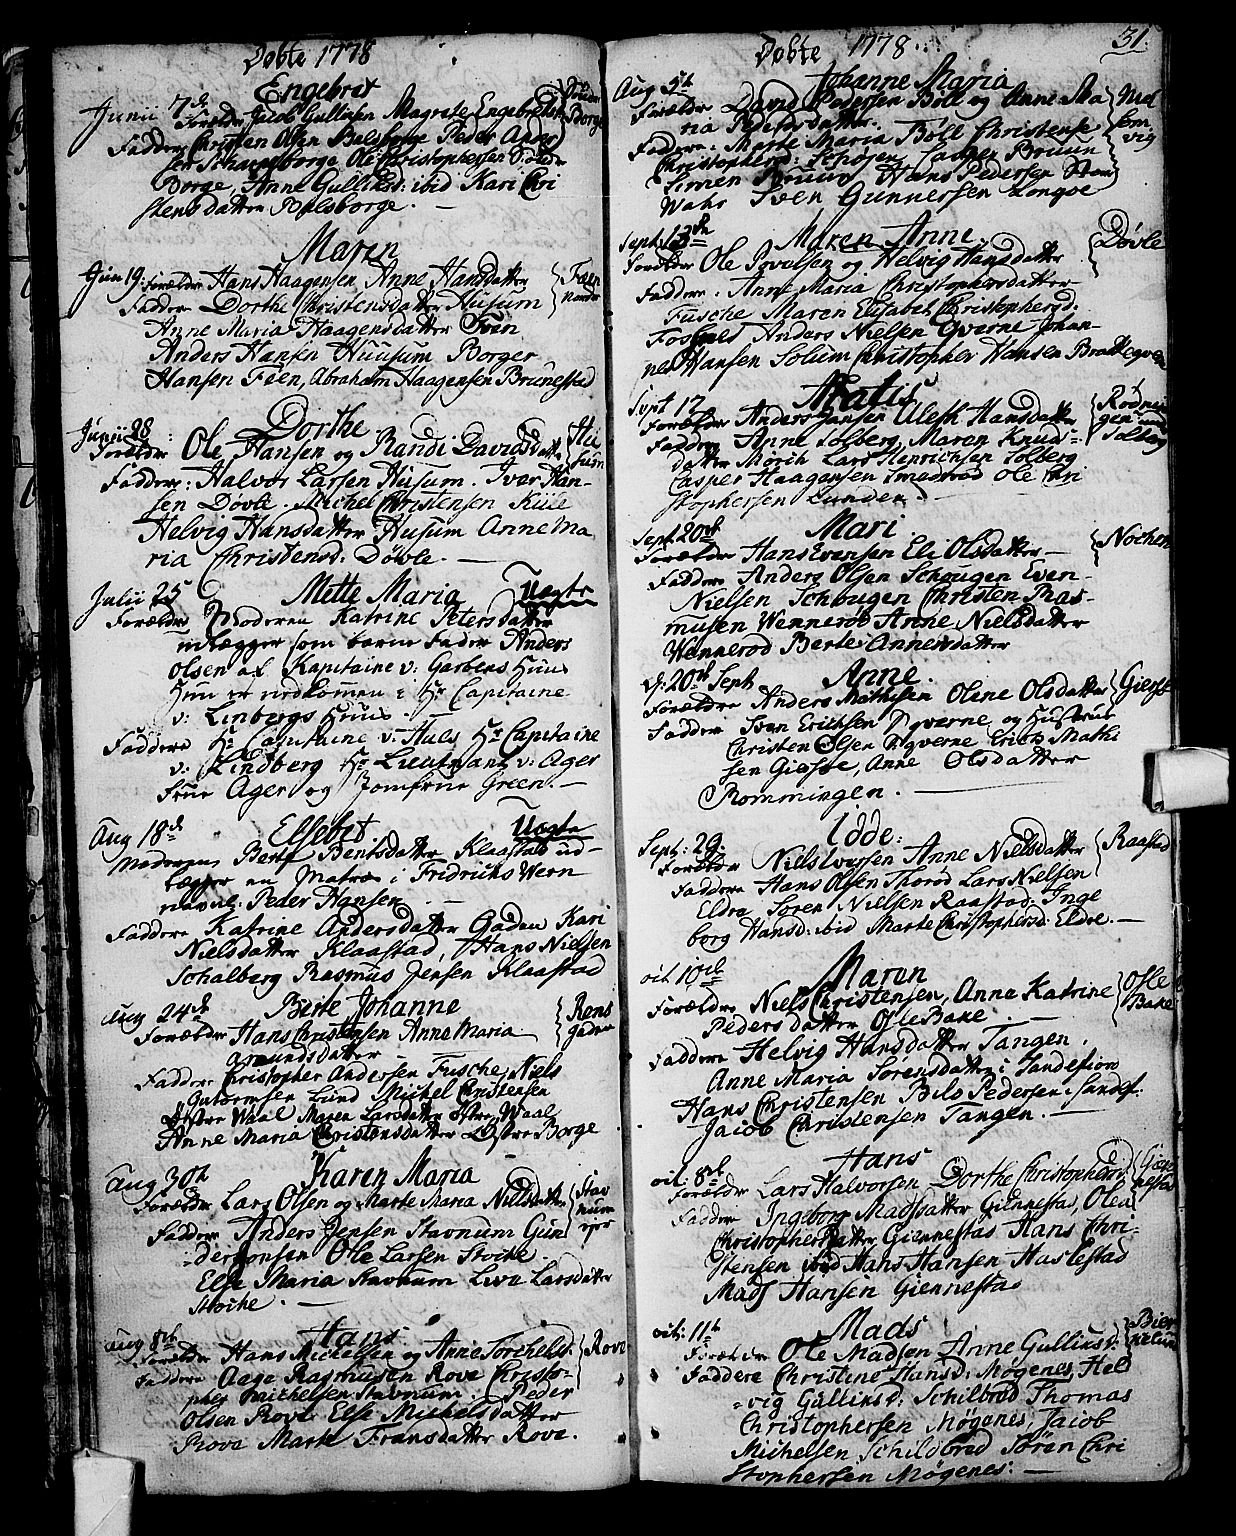 Døbte 1778
Engebret
Junii 7de Forældr Jacob Gullichsen Magrete Engebretsd.
Borge
Faddere Christen Olsen Bolsborge Peder Ander
sen Borge, Ole Christophersen
Borge, Anne Gulliksd: ibid Kari Chri
stensdatter Bolsborge.
Maren
Juni 19. Forældre Hans Haagensen Anne Hansdatter
Faddere Dorthe Christensdatter Husum
Anne Maria Haagensdatter Føen
Anders Hansen Huusum Borger
Hansen Føen, Abraham Haagensen Brunestad
Dorthe
Junii 28: Forældre Ole Hansen og Randi Davidsdatter
Husum
Faddere: Halvor Larsen Husum. Iver Han-
sen Døvle. Michel Christensen Kiile
Helvig Hansdatter Husum Anne Ma
ria Christensd: Døvle.
Julii 25 Mette Maria Uægte
Forældre Moderen Katrine Petersdatter
udlægger som barne Fader Anders
Olsen af Kapitaine v: Garbens Huus
Hun er nedkommen i Hr Capitaine
v: Linbergs Huus.
Faddere Hr Capitaine v: Huls Hr Capitaine
v: Lindberg Hr Lieutnant v: Ager
Frue Ager og Jomfrue Green.
Aug 18de Elsebet Uægte
Moderen Berte Bentsdatter Klaastad ud-
lægger en Matros i Fridrichs Wern
navnl: Peder Hansen
Faddere Katrine Andersdatter Gaden Kari
Nielsdatter Klaastad, Hans Nielsen
Schalberg Rasmus Jensen Klaastad
Aug 24de Berte Johanne
Forældre Hans Christensen Anne Maria
Amundsdatter
Faddere Christopher Andersen Fusche, Niels
Guttormsen Lund Michel Christensen
Østre Waal Maren Larsdatter Østre Waal
Anne Maria Christensdatter Østre Borge
Aug 30th Karen Maria
Forældre Lars Olsen og Marte Maria Nielsdatter
Faddere Anders Jensen Stavnum Gun
derhonsen Ole Larsen Stoche.
Else Maria Stavnum Live Larsdatter
Stoche.
Hans
Aug 8th Forældre Hans Michelsen og Anne Torchelsd:
Rove
Faddere Aage Rasmusen Rove Christo-
pher Michelsen Stavnum. Peder
Olsen Rove Else Michelsdatter
Rova Marte Fransdatter Rove.
Døbte 1778.
31.
Aug 5th Johanne Maria
Forældre David Pedersen Bøll og Anne Ma
ria Pedersdatter.
Faddere: Marte Maria Bøll Christense
Christophersd: Casper Bruun
Simen Bruun Hans Pedersen
Wahr Sven Gunnersen Longøe
Sept: 13de Maren Anne.
Døvle
Forældre Ole Povelsen og Helvig Hansdatter
Faddere. Anne Maria Christophersdatter
Fusche Maren Elisabet Christophersd:
Fosnes Anders Nielsen Qverne Johan-
nes Hansen Solum Christopher Hansen Brattegverne
Matis
Sept 17 Forældre Anders Jansen Aleth Hansdatter
Faddere Anne Solberg, Maren Knud-
datter Mørch Lars Henrichsen Solberg
Casper Haagensen Ole Chri
stophersen Lunden.
Sept 20th Mari
Forældre Hans Evensen Eli Olsdatter
Nochen
Faddere Anders Olsen Schougen Even
Nielsen Schougen Christen Ras-
musen Wennerød Anne Nielsdatter
Wennerød Berte Annersdatter
d: 20th Sept Anne.
Forældre Anders Mathisen Olene Olsdatter
Faddere Sven Erichsen Qverne og Hustrue
Christen Olsen Qverne Erich Mathi
sen Giesøe, Anne Olsdatter
Rommingen.
Sept: 29. Idde:
Forældre Niels Iversen Anne Nielsdatter
Raastad
Faddere Hans Olsen Thorød Lars Nielsen
Eldre, Søren Nielsen Raastad, Inge
borg Hansd: ibid Marte Christophersd: Eldre.
oct. 10de Maren
Forældre Niels Christensen, Anne Katrine
Pedersdatter OfleBake
Ofle
Bake
Faddere Helvig Hansdatter Tangen.
Anne Maria Sørensdatter i Sandefiord
Hans Christensen Bils Pedersen i Sandef.
Jacob Christensen Tangen.
oct. 8de Hans
Forældre Lars Halvorsen Dorthe Christophersd.
Faddere Ingeborg Madsdatter Giennestad, Olea
Christophersdatter Giennestad Hans Chri-
stensen ibid Hans Hansen Haslestad
Mads Hansen Giennestad
oct: 11th Mads
Forældre Ole Madsen Anne Gullichsd:
Faddere Christine Hansd: Møgenes Hel
vig Gullinsd: Schilbred Thomas
Christophersen Møgenes, Jacob
Michelsen Schildbred Søren Chri
stophersen Møgenes: